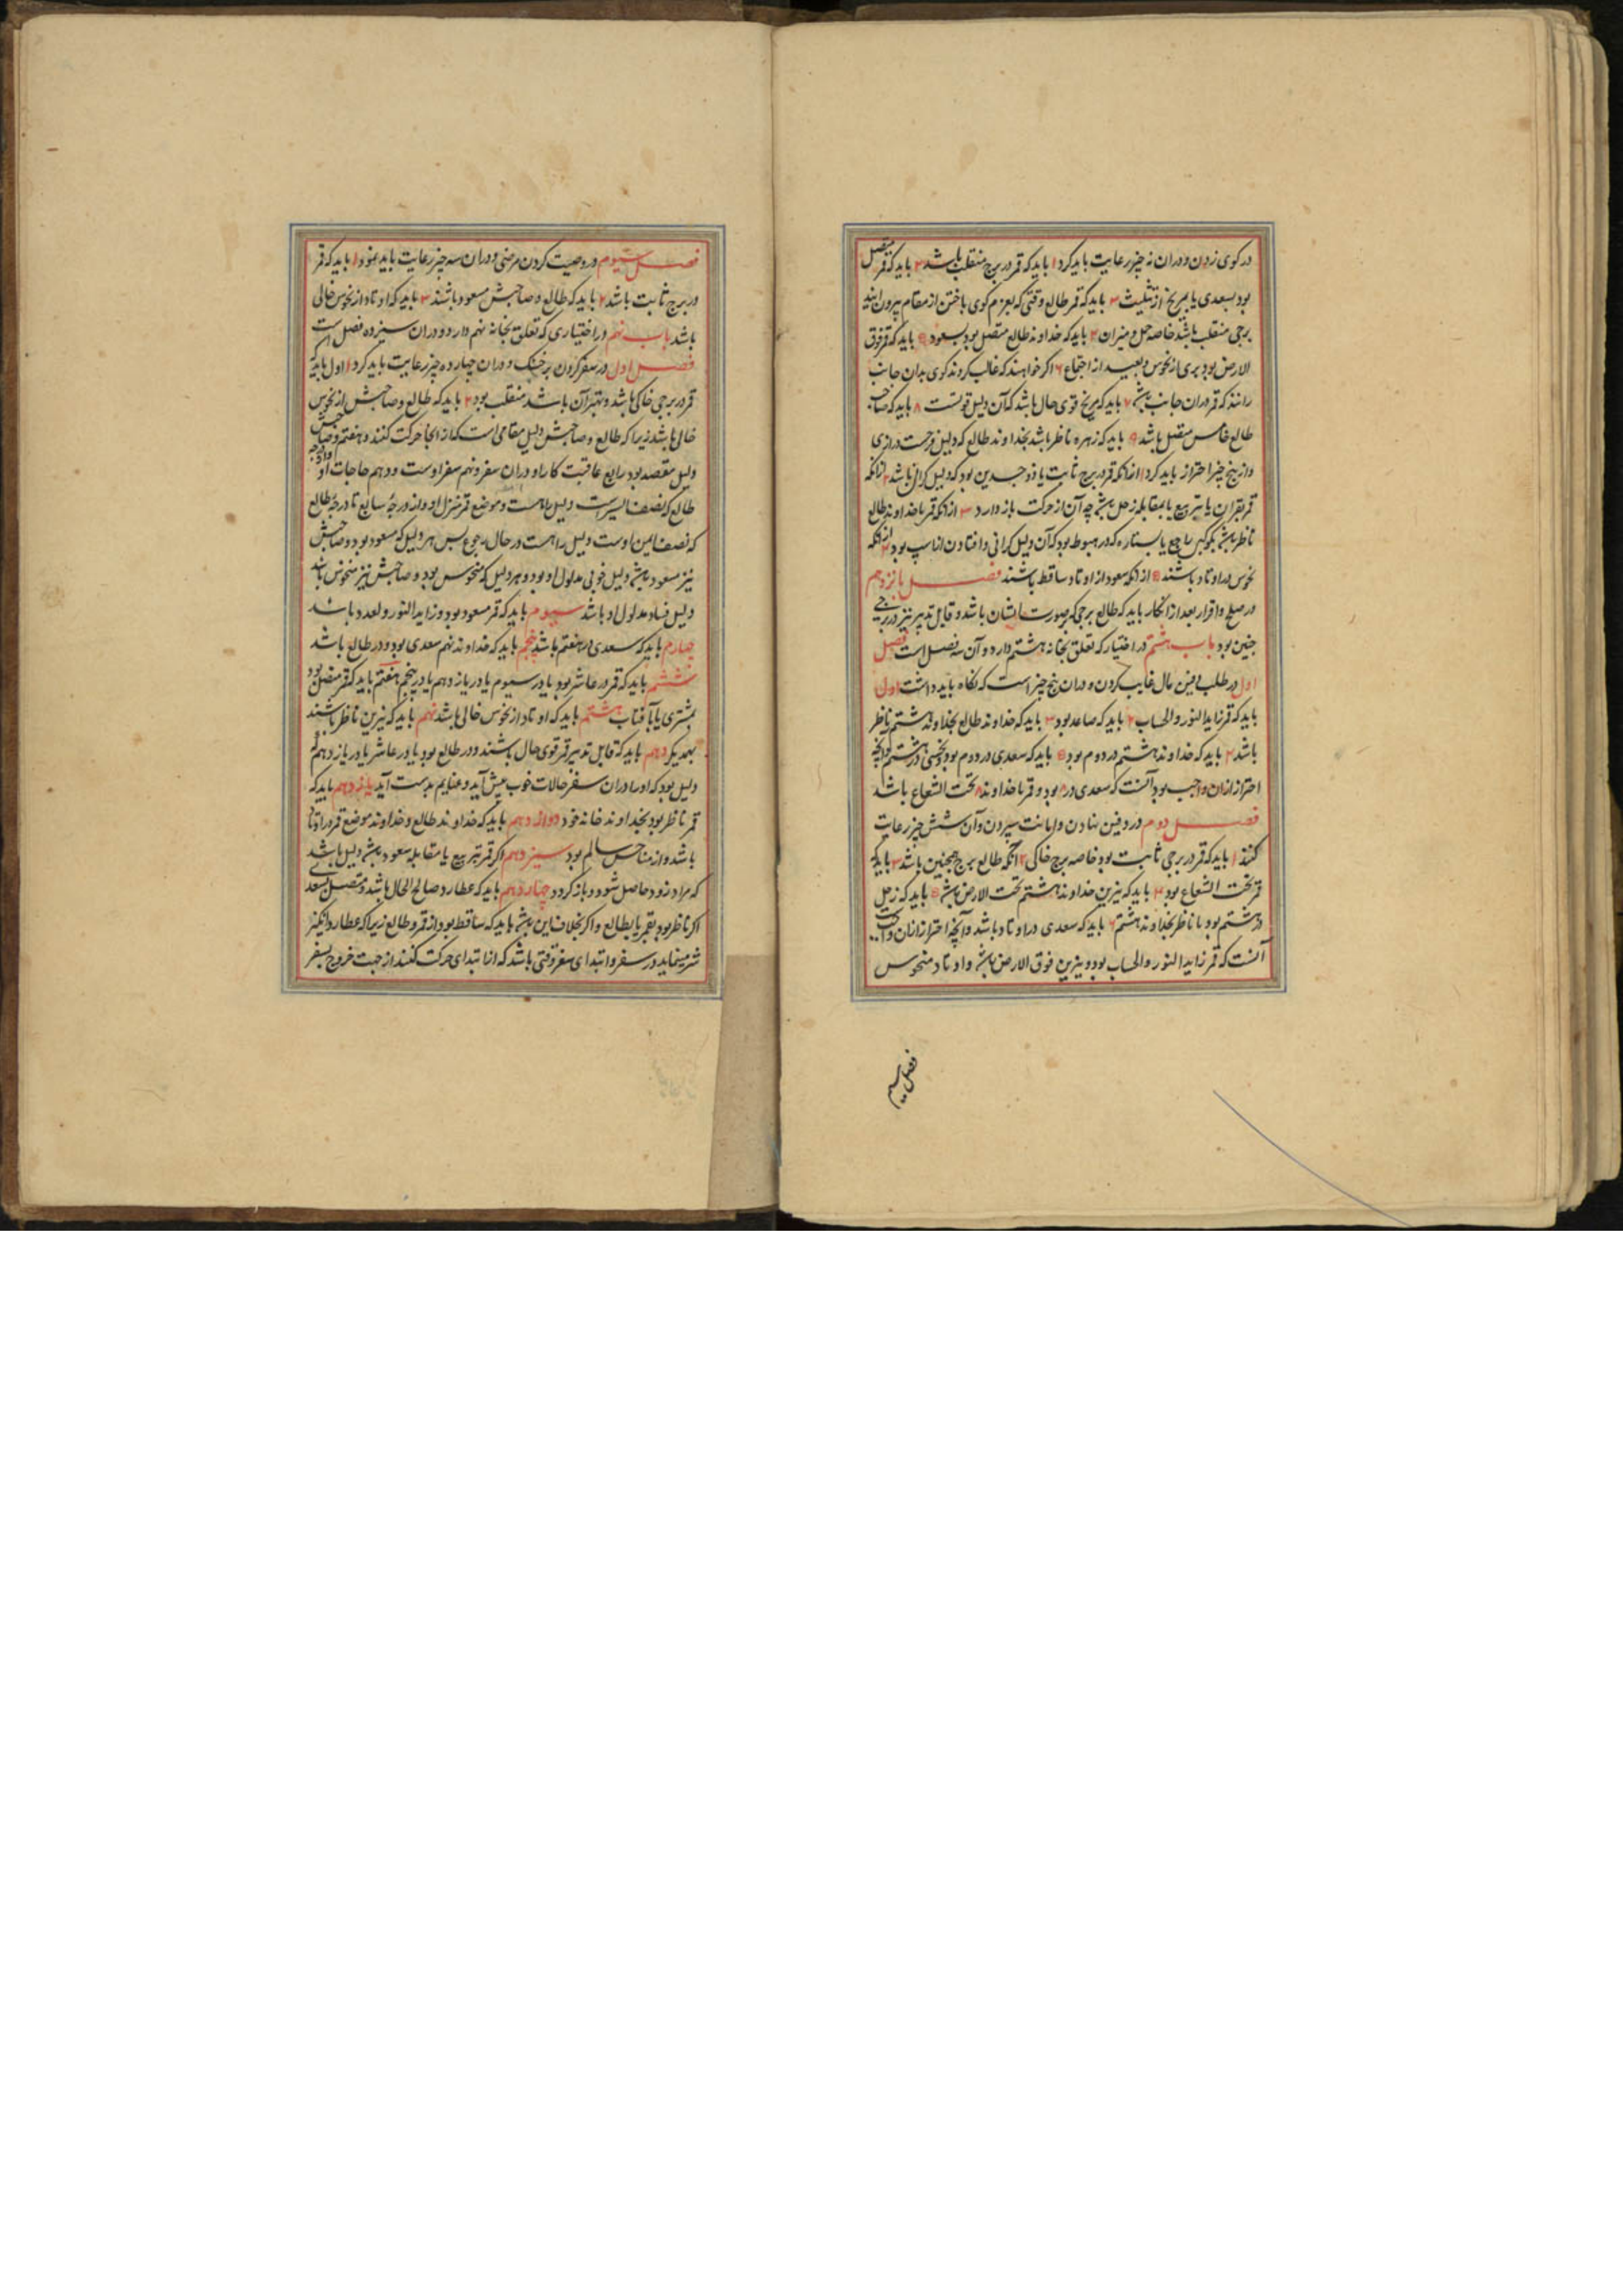 در کوی زدن و دران نه چیز رعایت باید کرد ۱ باید که قمر در برج منقلب باشد ۲ باید که قمر متصل
بود بسعدی یا بمریخ از تثلیث ۳ باید که قمر طالع وقتی که بعزم کوی باختن از مقام بیرون ایند
برجی منقلب باشد خاصه حمل و میزان ۴ باید که خداوند طالع متصل بود بسعود ۵ باید که قمر فوق
الارض بود بری از نحوس و بعید از اجتماع ۶ اکر خواهند که غالب کردند کوی بدان جانب
رانند که قمر دران جانب باشد ۷ باید که مریخ قوی حال باشد که آن دلیل قوتست ۸ باید که صاحب
طالع خامس متصل باشد ۹ باید که زهره ناظر باشد بخداوند طالع که دلیل فرحست درازی
و از پنج چیز احتراز باید کرد ۱ از انکه قمر در برج ثابت یا ذو جسدین بود که دلیل کرانی باشد ۲ ازانکه
قمر بقران یا بتربیع یا بمقابله زحل باشد چه آن از حرکت باز دارد ۳ از انکه قمر یا خداوند طالع
ناظر باشد بکوکبی راجع یا بستاره که در هبوط بود که آن دلیل کرانی و افتادن از اسپ بود ۴ ازانکه
نحوس در اوتاد باشند ۵ از انکه سعود از اوتاد ساقط باشند فصل یازدهم
در صلح و اقرار بعد از انکار باید که طالع برجی که بر صورت انسان باشد و قابل تدبیر نیز در برجی
چنین بود باب هشتم در اختیار که تعلق بخانه هشتم دارد و آن سه فصل است فصل
اول در طلب دفین مال غایب کردن و دران پنج چیز است که نکاه باید داشت اول
باید که قمر زاید النور و الحساب ۲ باید که صاعد بود ۳ باید که خداوند طالع بخداوند هشتم ناظر
باشد ۴ باید که خداوند هشتم در دوم بود ۵ باید که سعدی در دوم بود و نحسی در هشتم و آنچه
احتراز ازان واجب بود آنست که سعدی در ۸ بود و قمر با خداوند ۸ تحت الشعاع باشد
فصل دوم در دفین نهادن و امانت سپردن و آن شش چیز رعایت
کنند ۱ باید که قمر در برجی ثابت بود خاصه برج خاکی ۲ آنکه طالع برج همچنین باشد ۳ باید که
قمر تحت الشعاع بود ۴ باید که نیرین خداوند هشتم تحت الارض باشد ۵ باید که زحل
در هشتم بود یا ناظر بخداوند هشتم ۶ باید که سعدی در اوتاد باشد و آنچه احتراز ازان واجبست
آنست که قمر زاید النور و الحساب بود و نیرین فوق الارض باشد و اوتاد منحوس
فصل سیم
فصل سیوم در وصیت کردن مرضی و دران سه چیز رعایت باید نمود ۱ باید که قمر
در برج ثابت باشد ۲ باید که طالع و صاحبش مسعود باشند ۳ باید که اوتاد از نحوس خالی
باشد باب نهم در اختیاری که تعلق بخانه نهم دارد و دران سیزده فصل است
فصل اول در سفر کردن بر خشک و دران چهارده چیز رعایت باید کرد اول باید که
قمر در برجی خاکی باشد و بهتر آن باشد منقلب بود ۲ باید که طالع و صاحبش از نحوس
خالی باشد زیرا که طالع و صاحبش دلیل مقامی است که از انجا حرکت کنند و هفتم و صاحبش
دلیل مقصد بود رابع عاقبت کار او دران سفر و نهم سفر اوست و دهم حاجات او و از درجه
طالع که نصف ایسر ست دلیل راهست و موضع قمر منزل او و از درجه سابع تا درجه طالع
که نصف ایمن اوست دلیل راهست در حال رجوع پس هر دلیل که مسعود بود و صاحبش
نیز مسعود باشد دلیل خوبی مدلول او بود و هر دلیل که منحوس بود و صاحبش نیز منحوس باشد
دلیل فساد مدلول او باشد سیوم باید که قمر مسعود بود و زاید النور و لعدد باشد
چهارم باید که سعدی در هفتم باشد پنجم باید که خداوند نهم سعدی بود و در طالع باشد
ششم باید که قمر در عاشر بود یا در سیوم یا در یازدهم یا در پنجم هفتم باید که قمر متصل بود
بمشتری یا بآفتاب هشتم باید که اوتاد از نحوس خالی باشد نهم باید که نیرین ناظر باشند
بهمدیکر دهم باید که قابل تدبیر قمر قوی حال باشند و در طالع بود یا در عاشر یا در یازدهم که
دلیل بود که او را دران سفر حالات خوب پیش آید و غنایم بدست آید یازدهم باید که
قمر ناظر بود بخداوند خانه خود دوازدهم باید که خداوند طالع و خداوند موضع قمر در اوتاد
باشد و از مناحس سالم بود سیزدهم اکر قمر بتربیع یا مقابله سعود باشد دلیل باشد
که مراد زود حاصل شود و باز کردد چهاردهم باید که عطارد صالح الحال باشد و متصل بسعد
اکر ناظر بود بقمر یا بطالع و اکر بخلاف این باشد باید که ساقط بود از قمر و طالع زیرا که عطارد
شر مینماید در سفر و ابتدای سفر وقتی باشد که از ابتدای حرکت کنند از جهت خروج بسفر